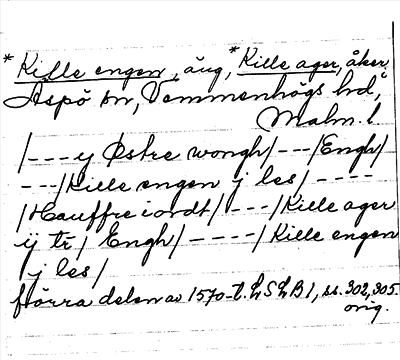 *Kille engen, äng, *Kille ager, åker,
Äspö sn, Vemmenhögs hd,
Malm. l.
/---y Østre wongh/---/Engh/
---/Kille engen j les/----
/Hauffre iordt/---/Kille ager
ij tr/ Engh/----/Kille engen
j les/
förra delen av 1570-t. LSLB 1, ss. 302, 305.
orig.